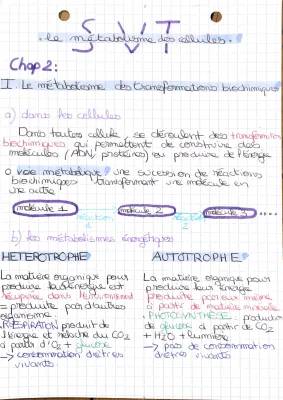 SVT
Le métabolisme des cellules.
Chap 2:
I. Le métabolisme des transformations biochimiques
a) dans les cellules
Dans toutes cellule, se déroulent des transformations
biochimiques qui permettent de construire des
molécules (ADN, protéines) ou produire de l'énergie
o voie métabolique : une sucession de réactions
biochimiques transforment une molécule en
une autre
molécule 1 réaction 1 molécule 2 réaction 2 molécule 3 ....
b) les métabolismes énergétiques
HETEROTROPHE
La matière organique pour
produire leur énergie est
récupérée dans l'environnement
= produite par d'autres
organisme.
. RESPIRATION produit de
l'énergie et relache du CO2
à partir d'O2 + glucose
→ consommation d'etres
vivants
AUTOTROPHE
La matière organique pour
produire leur énergie
produite par eux même
à partir de matière minérale
. PHOTOSYNTHÈSE: production
de glucose à partir de CO2
+ H2O + lumière
→ pas de consommation
d'etres vivants